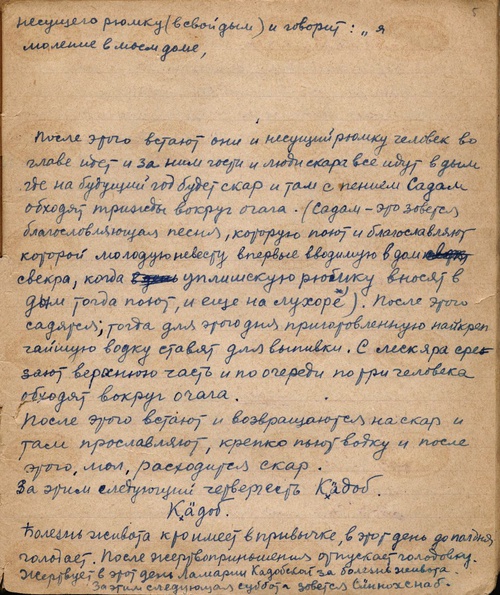 5
несущего рюмку (в свой дым) и говорит: „я
моление в моем доме,
После этого встают они и несущий рюмку человек во
главе идет и за ним гости и люди скара все идут в дым
где на будущий год будет скар и там с пением Садам
обходят трижды вокруг очага. (Садам – это зовется
благословляющая песня, которую поют и благославляют
которой молодую невесту впервые вводимую в дом
свекра, когда уплишскую рюмку вносят в
дым тогда поют, и еще на лухорё). После этого
садятся; тогда для этого дня приготовленную найкреп
чайшую водку ставят для выпивки. С лескяра сре-
зают верхнюю часть и по очереди по три человека
обходят вокруг очага.
После этого встают и возвращаются на скар и
там прославляют, крепко пьют водку и после
этого, мол, расходится скар.
За этим следующий четверг есть Кӓдоб.
Кӓдоб.
Болезнь живота кто имеет в привычке, в этот день до полдня
голодает. После жертвоприношения отпускает голодовку.
Жертвует в этот день Ламарии Кадобской за болезнь живота.
За этим следующая суббота зовется